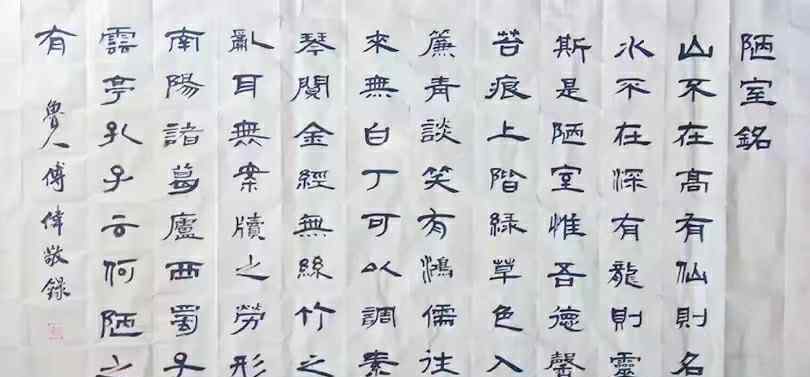 陋室銘
山不在高有仙則名
水不在深有龍則靈
斯是陋室惟吾德馨
苔痕上階綠草色入
簾青談笑有鴻儒往
來無白丁可以調素
琴閱金經無絲竹之
亂耳無案牘之勞形
南陽諸葛廬西蜀子
雲亭孔子云何陋之
有 魯人傅偉敬錄